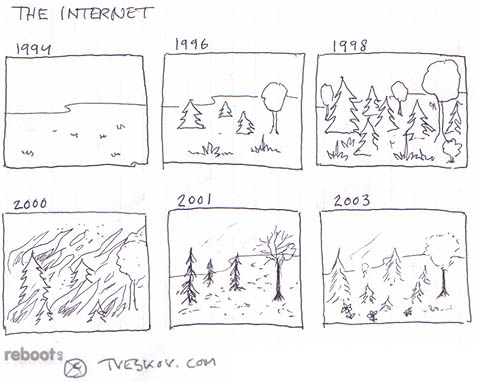 THE INTERNET
1994
1996
1998
2000
2001
2003
reboot8
TVESKOV.COM